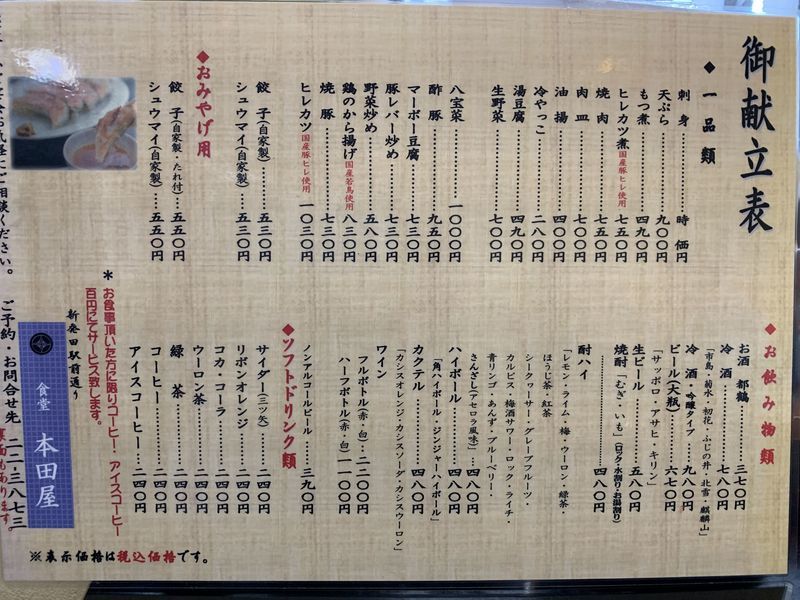 御献立表
◆一品類
刺身………時価円
天ぷら………九〇〇円
もつ煮………四九〇円
ヒレカツ煮 国産豚ヒレ使用………七五〇円
焼肉………七五〇円
肉皿………七〇〇円
油揚………四〇〇円
冷やっこ………二八〇円
湯豆腐………四九〇円
生野菜………七〇〇円
八宝菜………一〇〇〇円
酢豚………九五〇円
マーボー豆腐………七三〇円
豚レバー炒め………七三〇円
野菜炒め………五八〇円
鶏のから揚げ 国産若鳥使用………八三〇円
焼豚………七三〇円
ヒレカツ 国産豚ヒレ使用………一〇三〇円
餃子(自家製)………五三〇円
シュウマイ(自家製)………五三〇円
◆おみやげ用
餃子(自家製・たれ付)………五五〇円
シュウマイ(自家製)………五五〇円
◆お飲み物類
お酒 都鶴………三七〇円
冷酒………七八〇円
「市島・菊水・初花・ふじの井・北雪・麒麟山」
冷酒・吟醸タイプ………九八〇円
ビール(大瓶)………六七〇円
「サッポロ・アサヒ・キリン」
生ビール………五八〇円
焼酎「むぎ・いも」(ロック・水割り・お湯割り)
………四八〇円
酎ハイ
「レモン・ライム・梅・ウーロン・緑茶・
ほうじ茶・紅茶
シークワーサー・グレープフルーツ・
カルピス・梅酒サワー・ロック・ライチ・
青リンゴ・あんず・ブルーベリー・
さんざし(アセロラ風味)」………四八〇円
ハイボール………四八〇円
「角ハイボール・ジンジャーハイボール」
カクテル………四八〇円
「カシスオレンジ・カシスソーダ・カシスウーロン」
ワイン
フルボトル(赤・白)………二二〇〇円
ハーフボトル(赤・白)………一一〇〇円
ノンアルコールビール………三九〇円
◆ソフトドリンク類
サイダー(三ツ矢)………二四〇円
リボンオレンジ………二四〇円
コカ・コーラ………二四〇円
ウーロン茶………二四〇円
緑茶………二四〇円
コーヒー………二四〇円
アイスコーヒー………二四〇円
*お食事頂いた方に限りコーヒー・アイスコーヒー
百円にてサービス致します。
新発田駅前通り
食堂 本田屋
お気軽にご相談ください。
ご予約・お問合せ先 二二-三八七三
裏面もあります。
※表示価格は税込価格です。